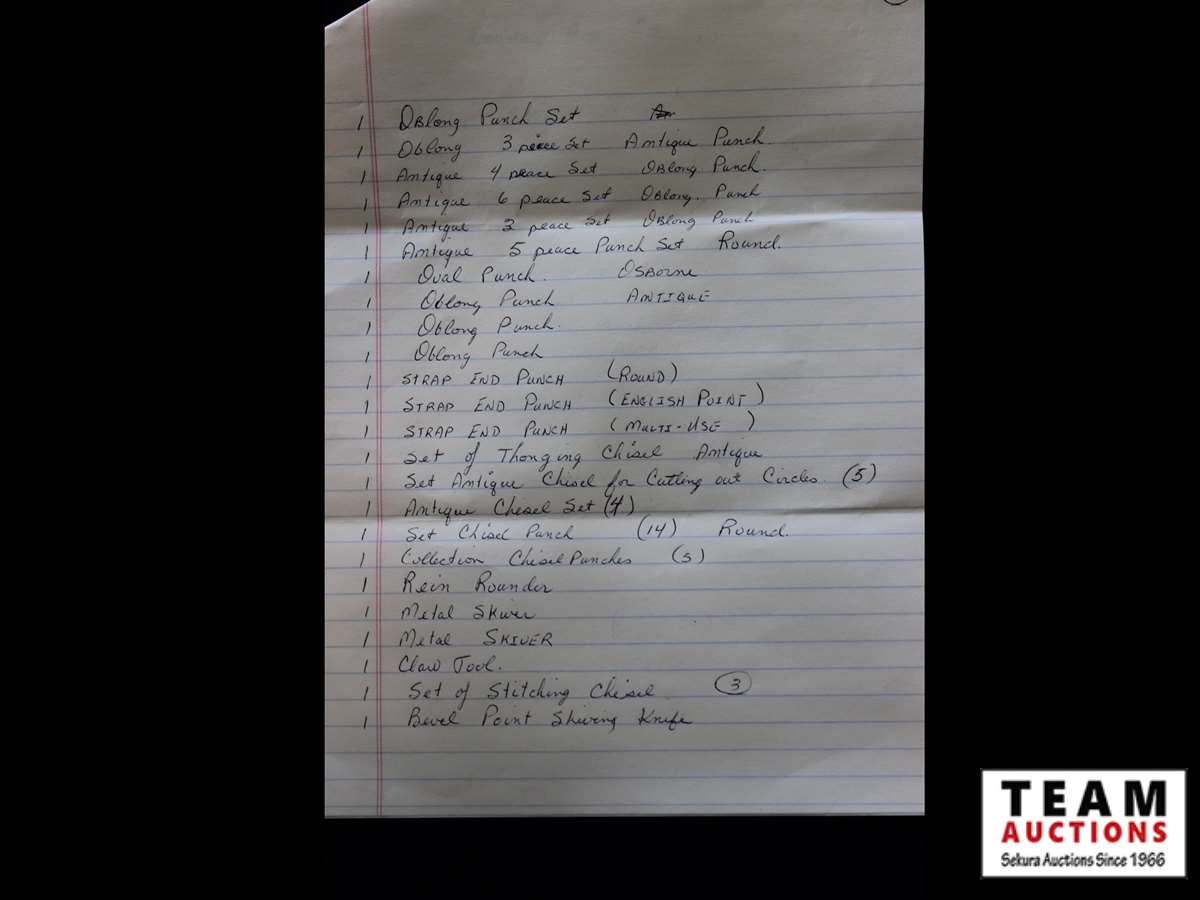 1 Oblong Punch Set
1 Oblong 3 peice Set Antique Punch.
1 Antique 4 peace Set Oblong Punch.
1 Antique 6 peace Set Oblong. Punch
1 Antique 2 peace Set Oblong Punch
1 Antique 5 peace Punch Set Round.
1 Oval Punch. Osborne
1 Oblong Punch ANTIQUE
1 Oblong Punch.
1 Oblong Punch
1 STRAP END PUNCH (ROUND)
1 STRAP END PUNCH (ENGLISH POINT)
1 STRAP END PUNCH (MULTI-USE)
1 Set of Thonging Chisel Antique
1 Set Antique Chisel for Cutting out Circles. (5)
1 Antique Chisel Set (4)
1 Set Chisel Punch (14) Round.
1 Collection Chisel Punches (5)
1 Rein Rounder
1 Metal Skiver
1 Metal SKIVER
1 Claw Tool.
1 Set of Stitching Chisel. 3
1 Bevel Point Skiving Knife
TEAM
AUCTIONS
Sekura Auctions Since 1966